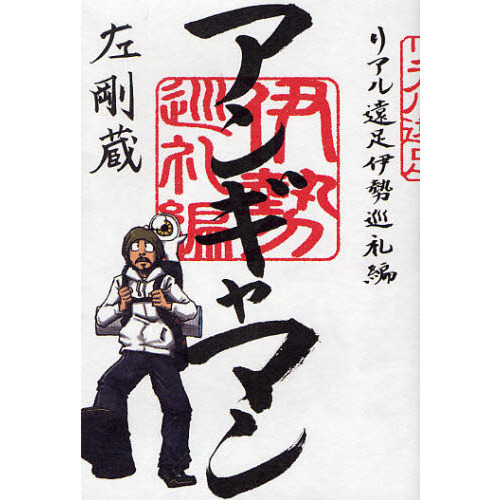 リアル遠足伊勢巡礼編
アンギャマン
伊勢
巡礼編
左剛蔵